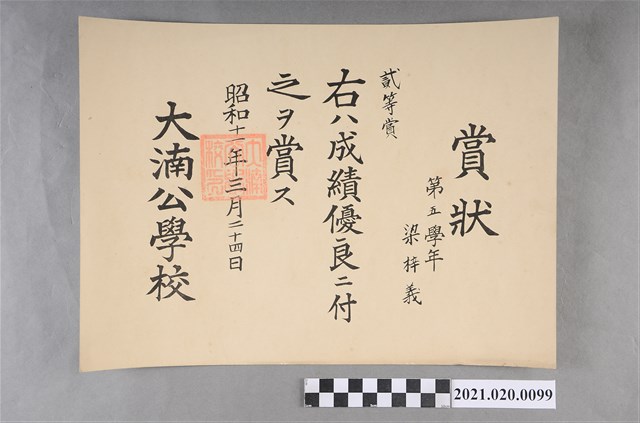 賞狀
第五學年
梁梓義
貳等賞
右ハ成績優良ニ付
之ヲ賞ス
昭和十一年三月二十四日
大湳公學校
2021.020.0099